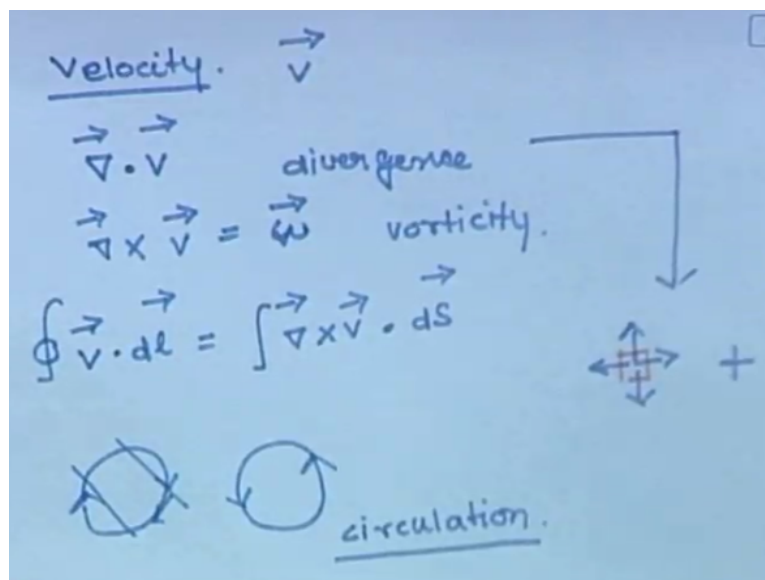 Velocity. v⃗
∇⃗ · v⃗ divergence
∇⃗ × v⃗ = ω⃗ vorticity.
∮ v⃗ · dl⃗ = ∫ ∇⃗ × v⃗ · dS⃗
+
circulation.